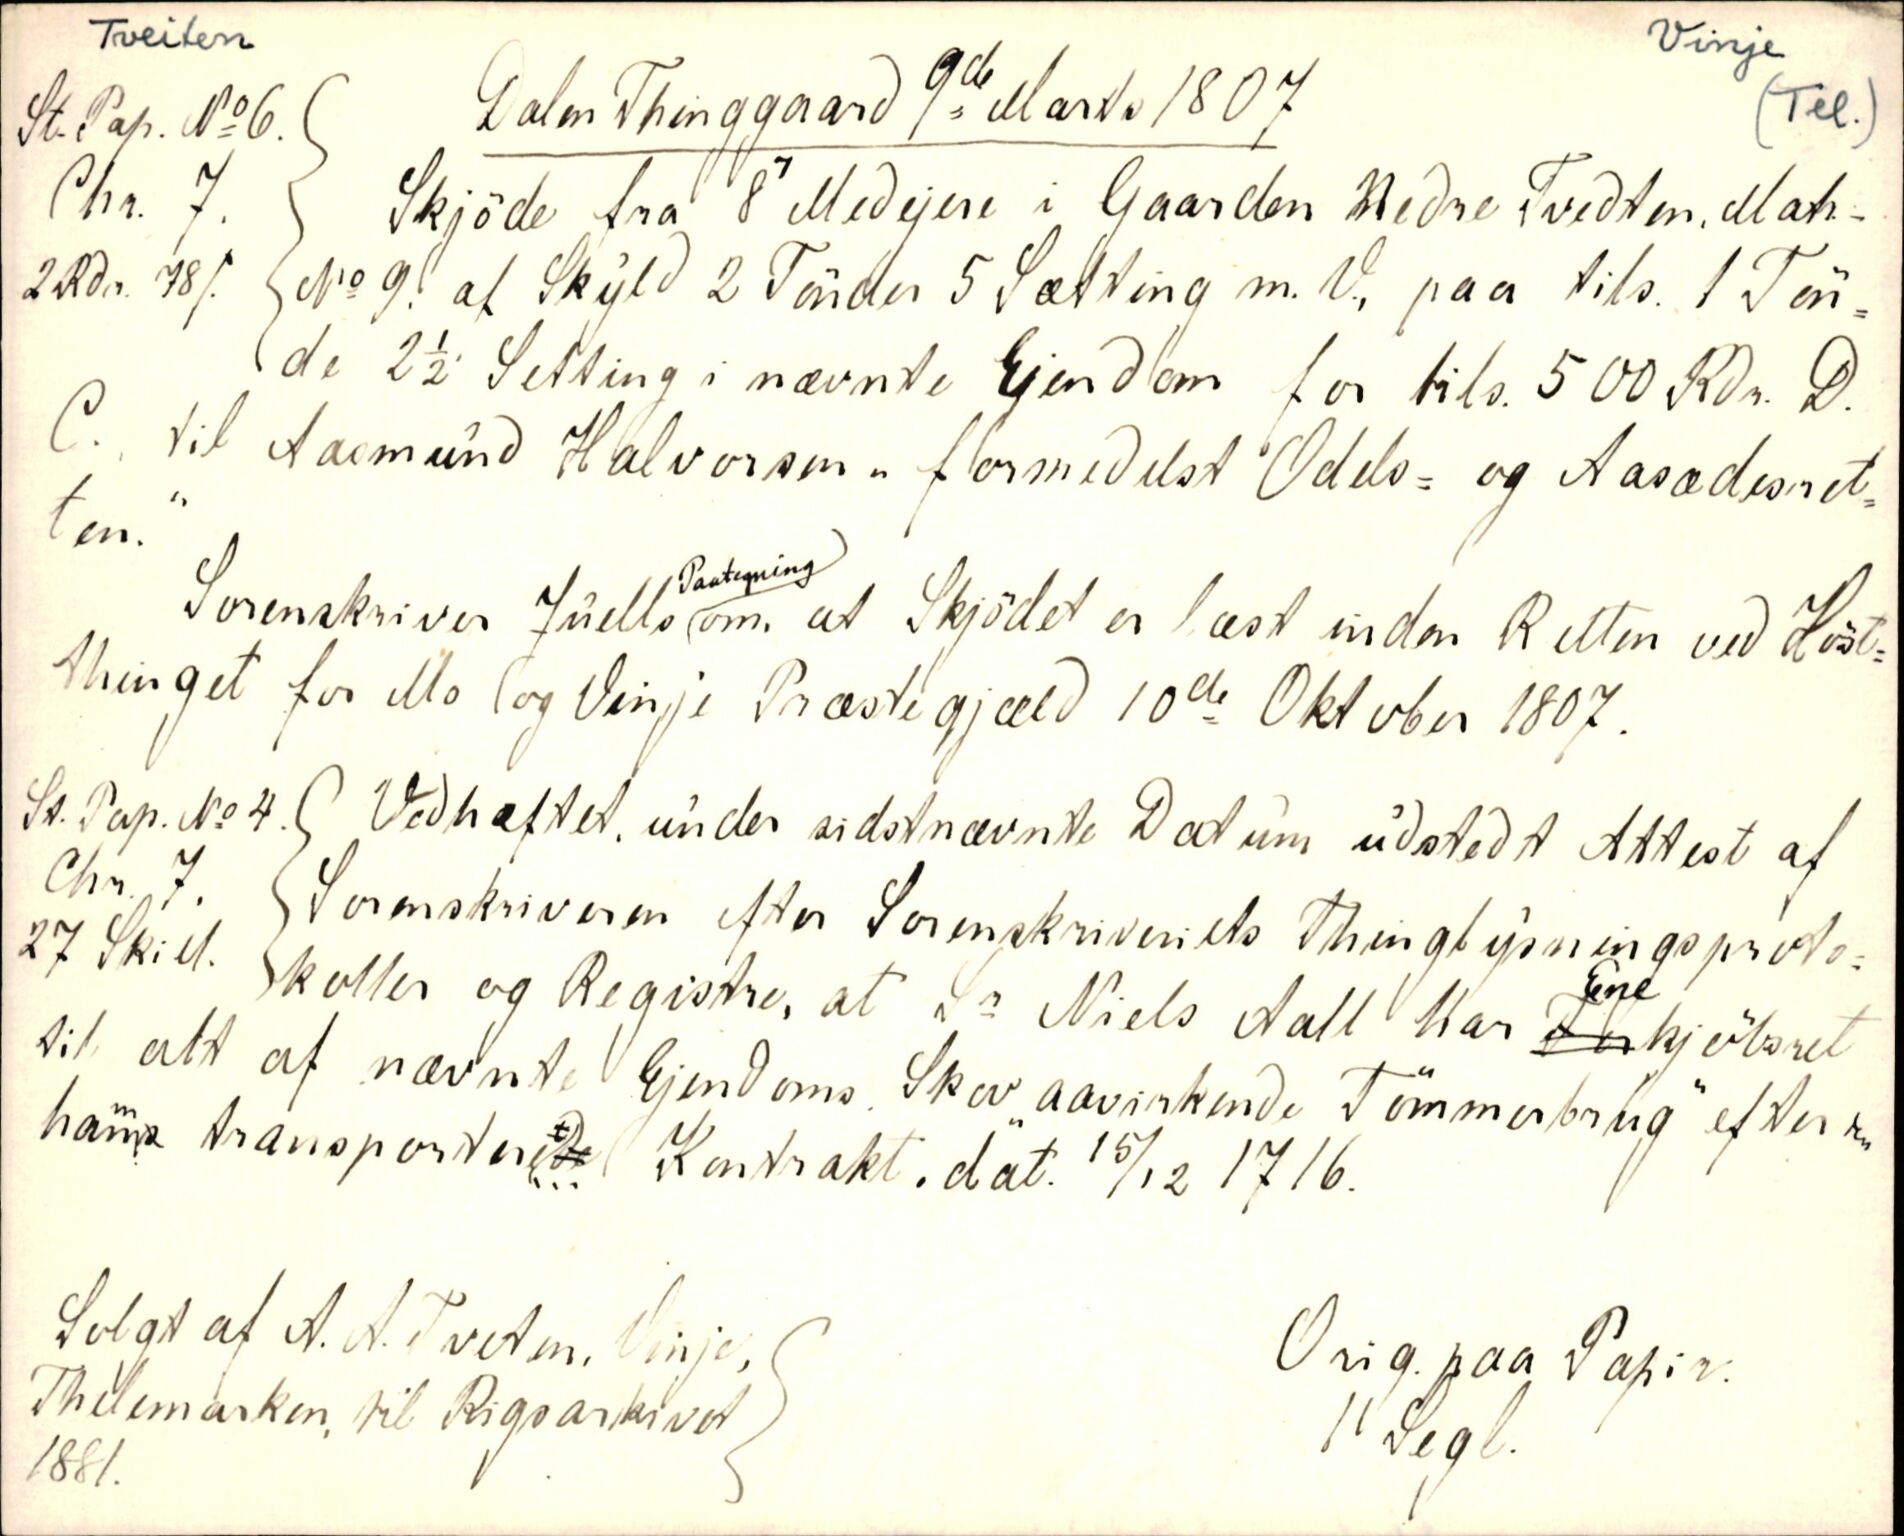 Tveiten
Vinje
(Tel.)
St. Pap. No 6.
Chr. 7.
2 Rdr. 78 s.
Dalen Thinggaard 9de Marts 1807
Skjöde fra 8 Medejere i Gaarden Nedre Tvedten, Matr-
No 9. af Skyld 2 Tönder 5 Sætting m. V., paa tils. 1 Tön=
de 2½ Setting i nævnte Ejendom for tils. 500 Rdr. D.
C., til Aasmund Halvorsen „formedelst Odels= og Aasædesret=
ten.“
Sorenskriver Juells Paategning om, at Skjödet er læst inden Retten ved Höst=
thinget for Mo og Vinje Præstegjæld 10de Oktober 1807.
St. Pap. No 4.
Chr. 7.
27 Skill.
Vedhæftet, under sidstnævnte Datum udstedt Attest af
Sorenskriveren efter Sorenskriveriets Thinglysningsproto=
koller og Registre, at Sr Niels Aall har Enekjöbsret
til alt af nævnte Ejendoms Skov „aavirkende Tömmerbrug“ efter en
ham transporteret Kontrakt, dat. 15/12 1716.
Solgt af A. A. Tveten, Vinje,
Thelemarken, til Rigsarkivet
1881.
Orig. paa Papir.
11 Segl.